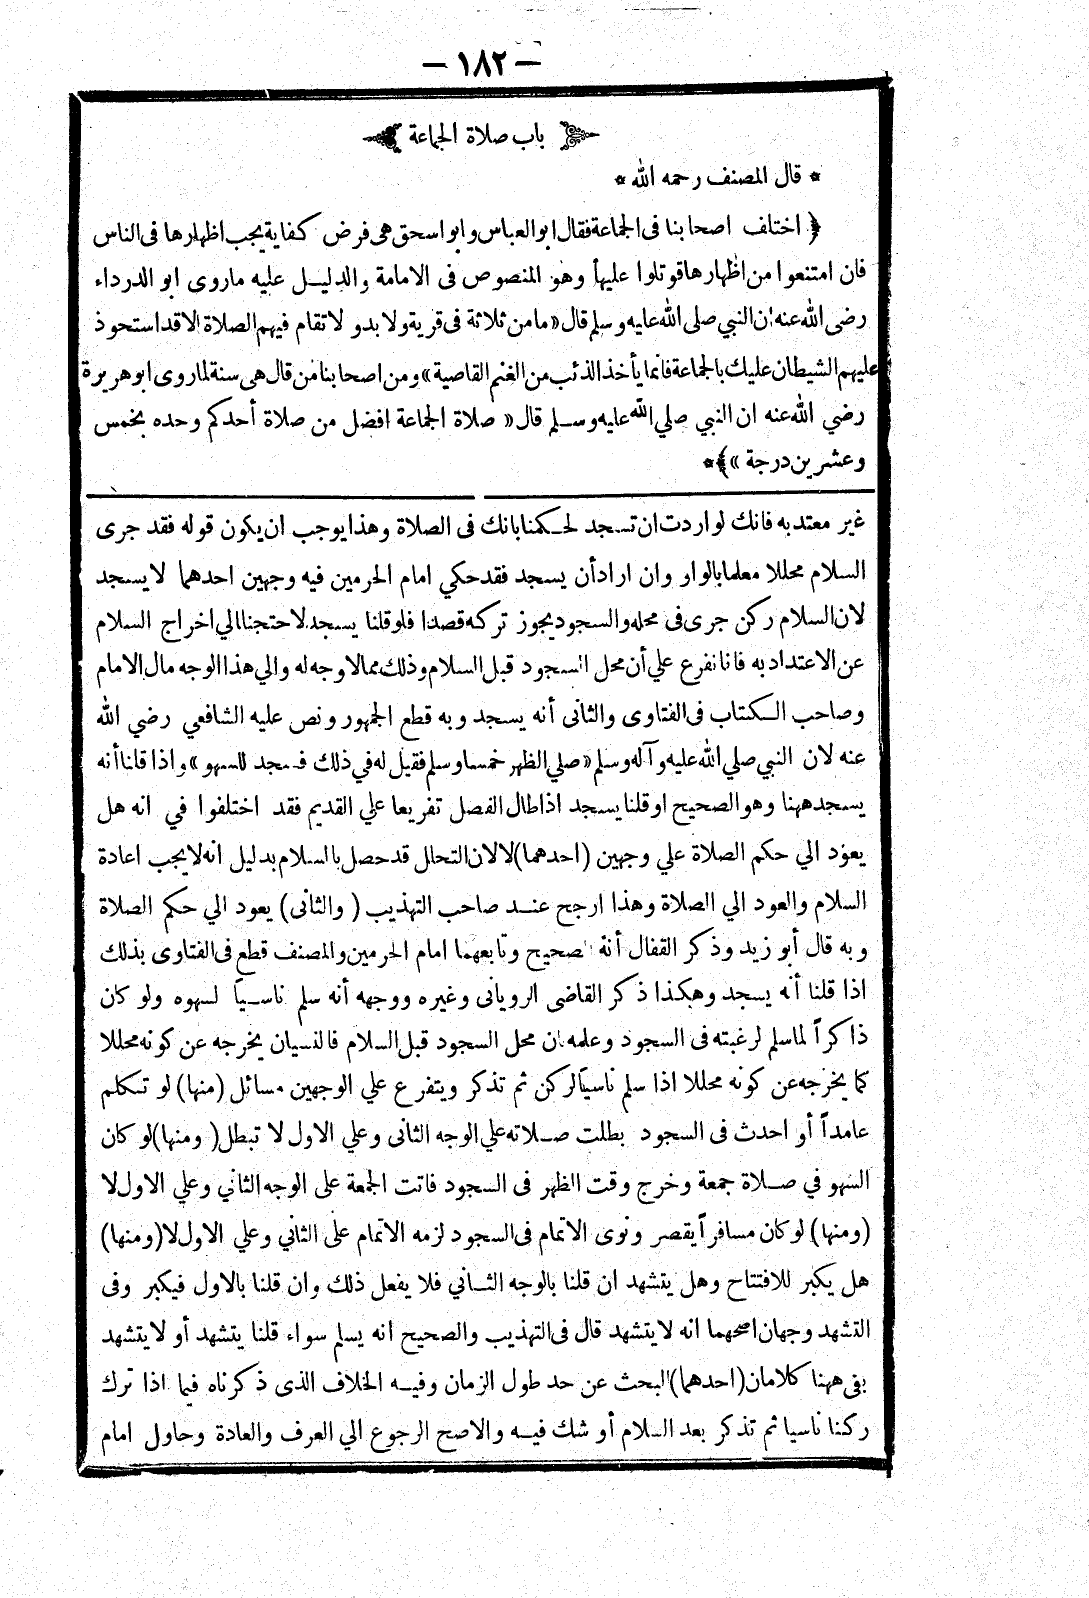 — ١٨٢ —
باب صلاة الجماعة
* قال المصنف رحمه الله *
﴿ اختلف اصحابنا فى الجماعة فقال ابو العباس وابو اسحق هى فرض كفاية يجب اظهارها فى الناس
فان امتنعوا من اظهارها قوتلوا عليها وهو المنصوص فى الامامة والدليل عليه ماروى ابو الدرداء
رضى الله عنه ان النبي صلى الله عليه وسلم قال « مامن ثلاثة فى قرية ولا بدو لا تقام فيهم الصلاة الا قد استحوذ
عليهم الشيطان عليك بالجماعة فانما يأخذ الذئب من الغنم القاصية » ومن اصحابنا من قال هى سنة لما روى ابو هريرة
رضي الله عنه ان النبي صلي الله عليه وسلم قال « صلاة الجماعة افضل من صلاة أحدكم وحده بخمس
وعشرين درجة » ﴾ *
غير معتد به فانك لو اردت ان تسجد لحكمنا بانك فى الصلاة وهذا يوجب ان يكون قوله فقد جرى
السلام محللا معلما بالواو وان اراد أن يسجد فقد حكي امام الحرمين فيه وجهين احدهما لا يسجد
لان السلام ركن جرى فى محله والسجود يجوز تركه قصدا فلو قلنا يسجد لاحتجنا الي اخراج السلام
عن الاعتداد به فانا نفرع علي أن محل السجود قبل السلام وذلك مما لا وجه له والي هذا الوجه مال الامام
وصاحب الكتاب فى الفتاوى والثانى أنه يسجد وبه قطع الجمهور ونص عليه الشافعي رضي الله
عنه لان النبي صلي الله عليه وآله وسلم « صلي الظهر خمسا وسلم فقيل له في ذلك فسجد للسهو » واذا قلنا أنه
يسجد ههنا وهو الصحيح او قلنا يسجد اذا طال الفصل تفريعا علي القديم فقد اختلفوا في انه هل
يعود الي حكم الصلاة علي وجهين (احدهما) لا لان التحلل قد حصل بالسلام بدليل انه لا يجب اعادة
السلام والعود الي الصلاة وهذا ارجح عند صاحب التهذيب ( والثانى ) يعود الي حكم الصلاة
وبه قال أبو زيد وذكر القفال أنه الصحيح وتابعهما امام الحرمين والمصنف قطع فى الفتاوى بذلك
اذا قلنا أنه يسجد وهكذا ذكر القاضى الرويانى وغيره ووجهه أنه سلم ناسياً لسهوه ولو كان
ذاكراً لما سلم لرغبته فى السجود وعلمه ان محل السجود قبل السلام فالنسيان يخرجه عن كونه محللا
كما يخرجه عن كونه محللا اذا سلم ناسيا لركن ثم تذكر ويتفرع علي الوجهين مسائل (منها) لو تكلم
عامداً أو احدث فى السجود بطلت صلاته علي الوجه الثانى وعلي الاول لا تبطل ( ومنها) لو كان
السهو في صلاة جمعة وخرج وقت الظهر فى السجود فاتت الجمعة على الوجه الثاني وعلي الاول لا
(ومنها) لو كان مسافراً يقصر ونوى الاتمام فى السجود لزمه الاتمام على الثاني وعلي الاول لا (ومنها)
هل يكبر للافتتاح وهل يتشهد ان قلنا بالوجه الثاني فلا يفعل ذلك وان قلنا بالاول فيكبر وفى
التشهد وجهان اصحهما انه لا يتشهد قال فى التهذيب والصحيح انه يسلم سواء قلنا يتشهد أو لا يتشهد
بقى ههنا كلامان (احدهما) البحث عن حد طول الزمان وفيه الخلاف الذى ذكرناه فيما اذا ترك
ركنا ناسيا ثم تذكر بعد السلام أو شك فيه والاصح الرجوع الي العرف والعادة وحاول امام